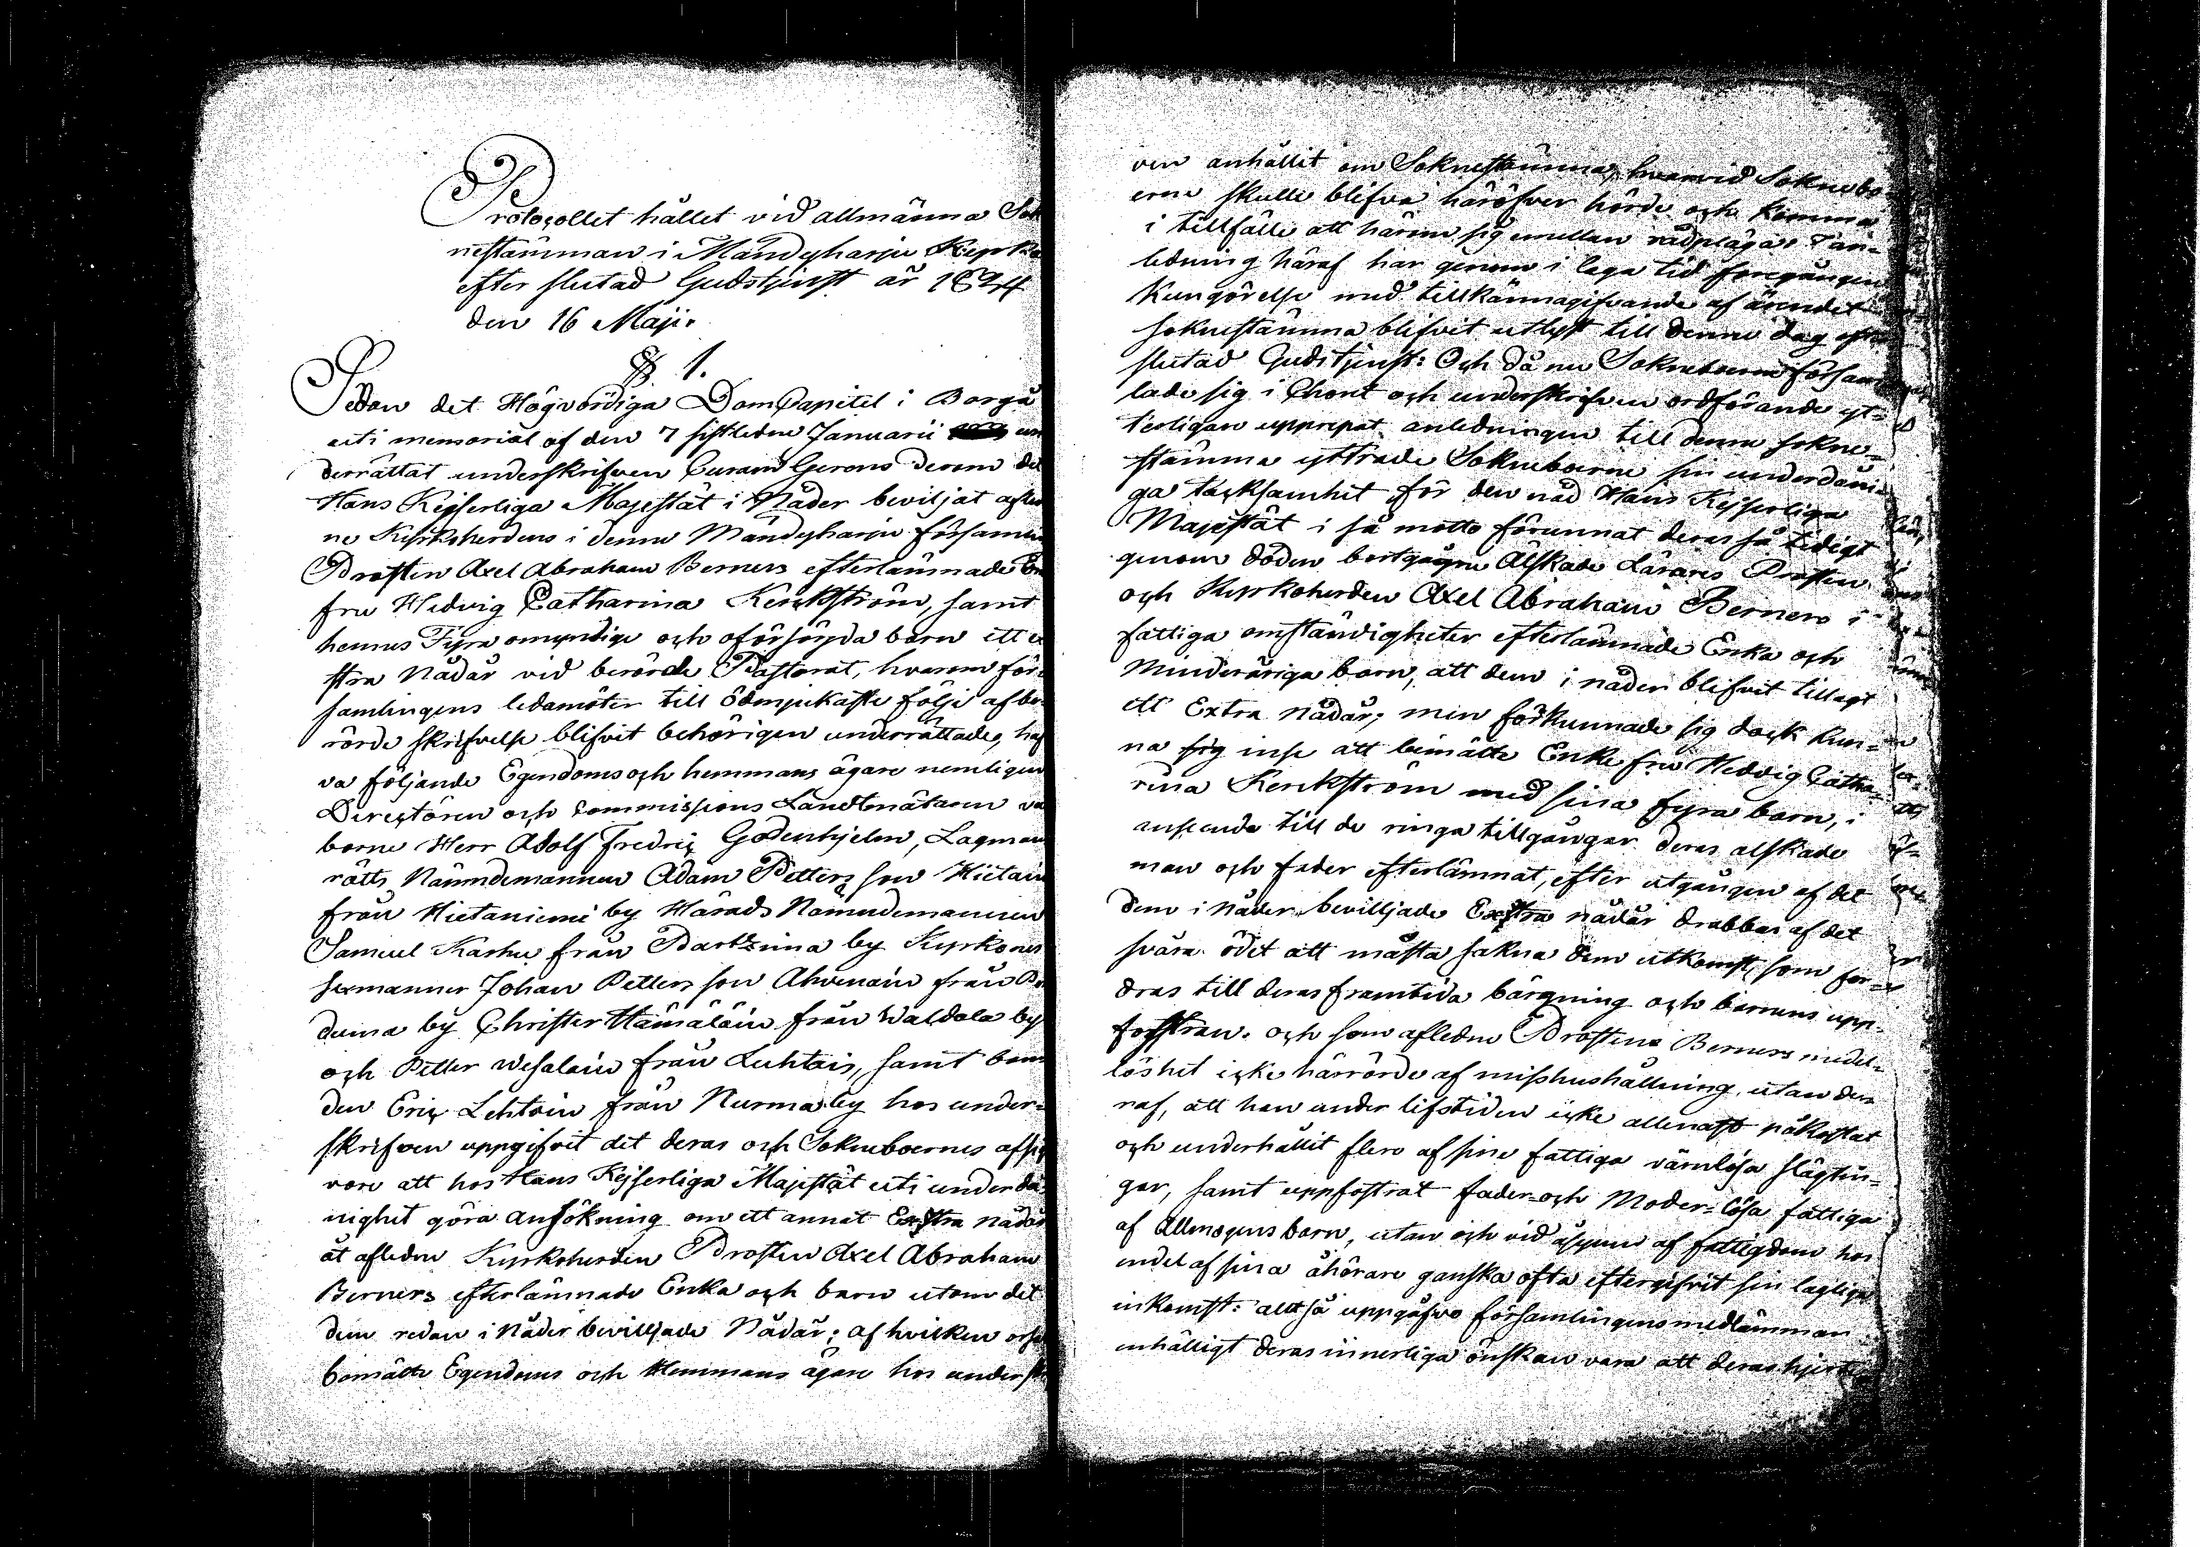 Protocollet hållet vid allmänna Sok
nestämman i Mändyharju Kyrka
efter slutad Gudstjenst år 1824
den 16 Maji.
§. 1.
Sedan det Högvördiga DomCapitel i Borgå
uti memorial af den 7 sistledne Januarii un
derrättat underskrifven Curam Gerens derom det
Hans Kejserliga Majestät i Nåder beviljat afled
ne Kyrkoherdens i denne Mändyharju församling
Prosten Axel Abraham Berners efterlämnade En
fru Hedvig Catharina Kerckström, samt
hennes Fyra omyndige och oförsörjda barn ett e
stra Nådår vid berörde Pastorat, hvarom för-
samlingens ledamöter till ödmjukaste följe af be
rörde skrifvelse blifvit behörigen underrättade, haf
va följande Egendoms och hemmans ägare nemligen
Directören och Commissions Landtmätaren va
borne Herr Adolf Fredric Godenhjelm, Lagman
rätts Nämndemannen Adam Petters son Hietain
från Hietaniemi by Härads Nämndemannen
Samuel Karhu från Partzima by Kyrkones
sexmänner Johan Petters son Ahvenain från Po
duma by Christer Hämäläin från Waldola by
och Petter Wesalain från Luhtais, samt bon
den Eric Lehtoin från Nurma by hos under-
skrifven uppgifvit det deras och Sokneboernes afsig
vore att hos Hans Kejserliga Majestät uti underdå
nighet göra ansökning om ett annat Exstra nådår
åt afledne Kyrkoherden Prosten Axel Abraham
Berners efterlämnade Enka och barn utom det
dem redan i Nåder bevilljade Nådår; af hvilken orsa
bemälte Egendoms och Hemmans ägare hos underskr
ven anhållit om Soknestämma, hvarvid Soknebo-
erne skulle blifva häröfver hörde och komma
i tillfälle att härom sig emellan rådplaga. I an-
ledning häraf har genom i laga tid foregången
Kungörelse med tillkännagifvande af ärendet
soknestämma blifvit utlyst till denne dag efter
slutad Gudstjenst: Och då nu Sokneboerne församm
lade sig i Choret och underskrifven ordförande yt-
terligare upprepat anledningen till denne sokne-
stämma yttrade Sokneboerne sin underdåni-
ga tacksamhet för den nåd Hans Kejserliga
Majestät i så motto förunnat deras så tidigt
genom döden bortgångne Älskade Lärares Prosten
och Kyrkoherden Axel Abraham Berners i
fattiga omständigheter efterlämnade Enka och
Minderåriga barn, att dem i nåder blifvit tillagt
ett Extra Nådår; men förkunnade sig dock kun-
na inse att bemälte Enke fru Hedvig Catha-
rina Kerckström med sina fyra barn, i
anseende till de ringa tillgångar deras alskade
man och fader efterlämnat, efter utgången af det
dem i Nåder bevilljade Exstra nådår drabbas af det
svåra ödet att måsta sakna den utkomst som for-
dras till deras framtida bärgning och barnens upp-
fostran. och som afledne Prostens Berners medel-
löshet icke härrörde af misshushållning, utan de-
raf, att han under lifstiden icke allenast påkostat
och underhållit flere af sine fattiga värnlösa slägtin-
gar, samt uppfostrat fader- och Moder-lösa fattiga
af Allmogens barn, utan och vid åsyne af fattigdom hos
endel af sina åhörare ganska ofta eftergifvit sin lagliga
inkomst: alltså uppgåfvo församlingens medlämmar
enhälligt deras innerliga önskan vara att deras hjert